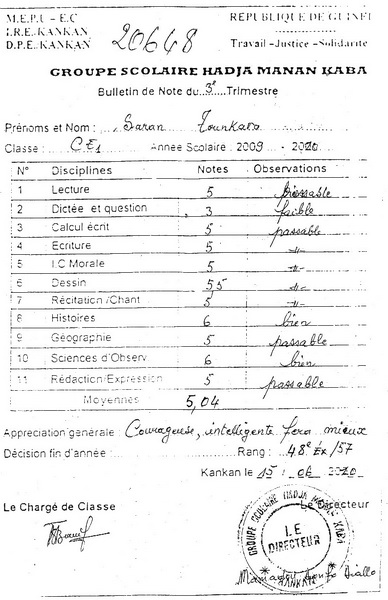 M.E.P.U - E.C REPUBLIQUE DE GUINEE
I.R.E. KANKAN
D.P.E. KANKAN 20648 Travail -Justice -Solidarité
GROUPE SCOLAIRE HADJA MANAN KABA
Bulletin de Note du 3e Trimestre
Prénoms et Nom : Saran Tounkara
Classe : CE1 Année Scolaire 2009 - 2010
N° Disciplines Notes Observations
1 Lecture 5 passable
2 Dictée et question 3 faible
3 Calcul écrit 5 passable
4 Ecriture 5 -//-
5 I.C Morale 5 -//-
6 Dessin 5,5 -//-
7 Récitation /Chant 5 -//-
8 Histoires 6 bien
9 Géographie 5 passable
10 Sciences d'Observ 6 bien
11 Rédaction/Expression 5 passable
Moyennes 5,04
Appreciation générale : Courageuse, intelligente fera mieux
Décision fin d'année : Rang : 48e ER/57
Kankan le 15 : 06 2010
Le Chargé de Classe Le Directeur
GROUPE SCOLAIRE HADJA MANAN KABA
LE
DIRECTEUR
* KANKAN *
Mamadou Diallo